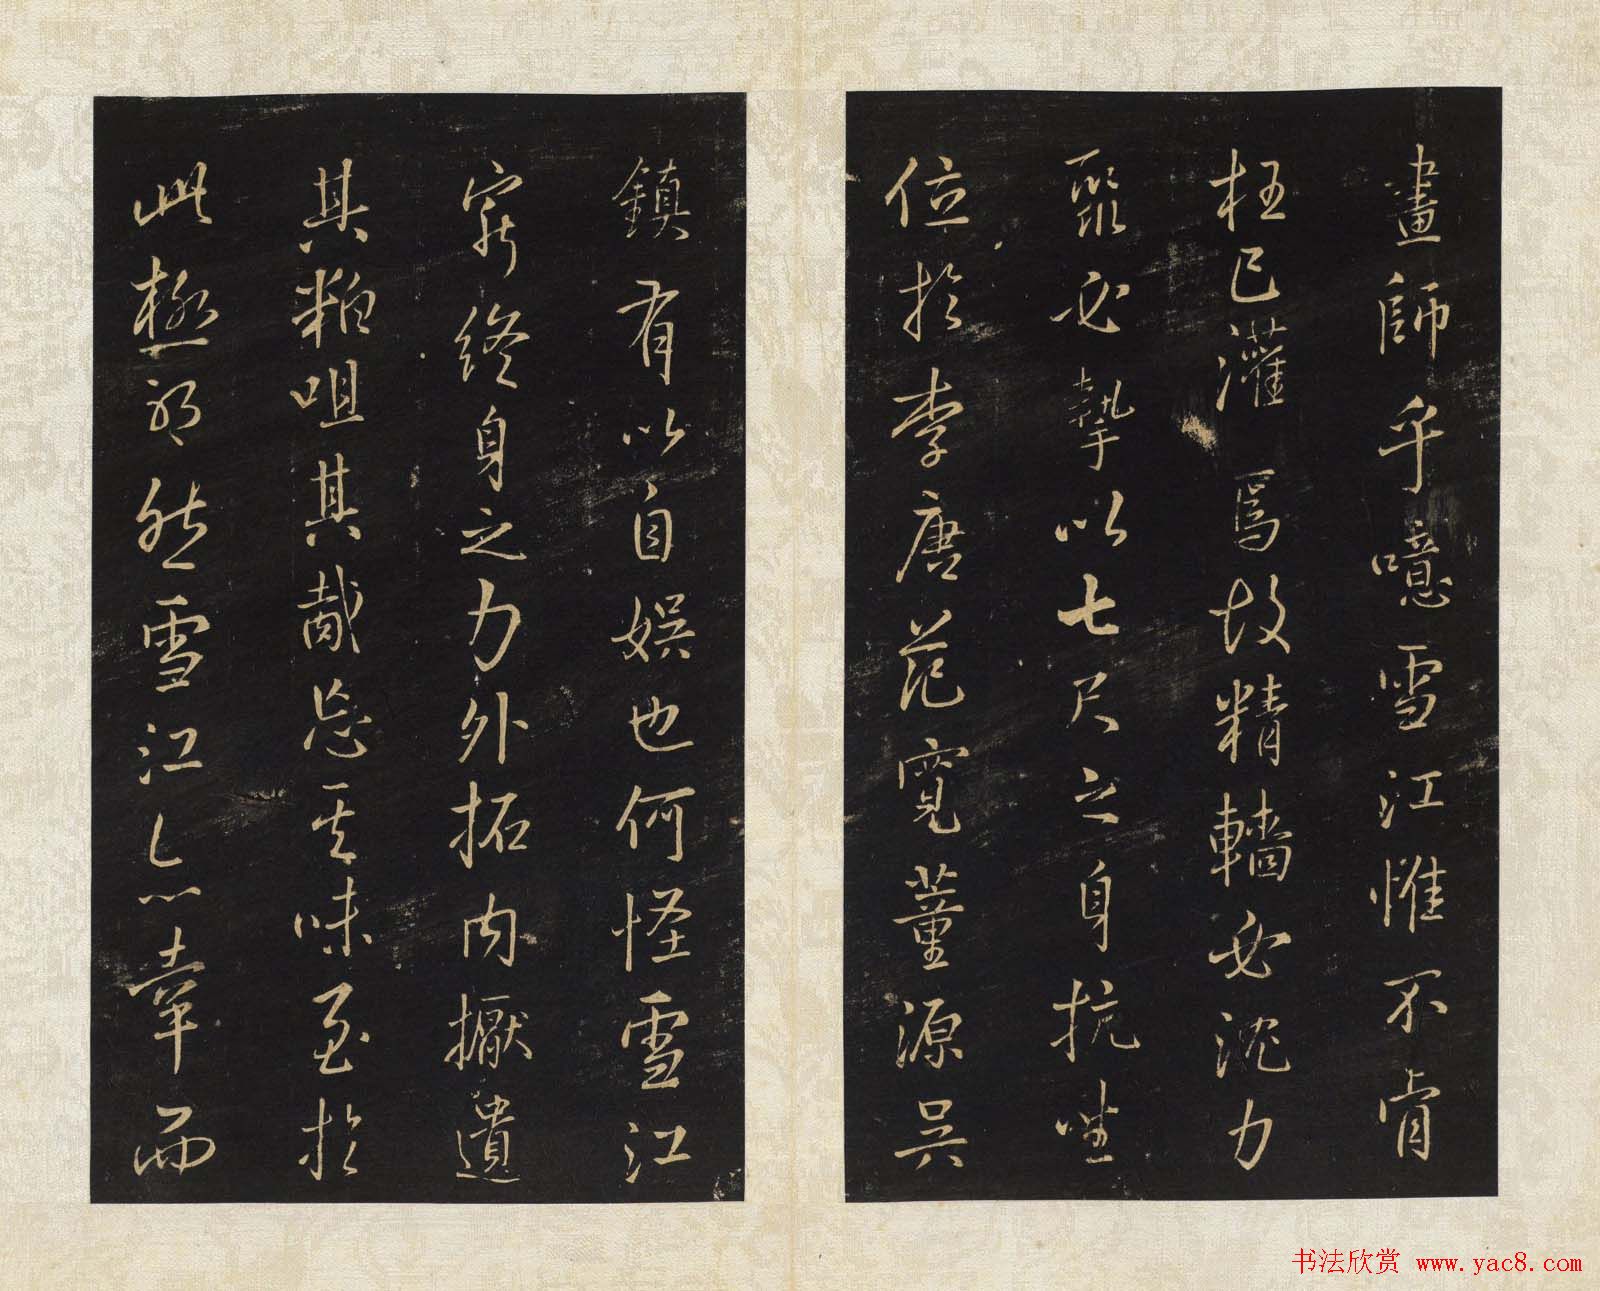 畫師乎噫雪江惟不肯
枉己灌焉故精轖必沈力
聚必摯以七尺之身抗坐
位於李唐范寬董源吳
鎮有以自娛也何怪雪江
窮終身之力外拓內擫遺
其粗咀其胾忘其味至於
此極耶然雪江亦幸而
书法欣赏 www.yac8.com